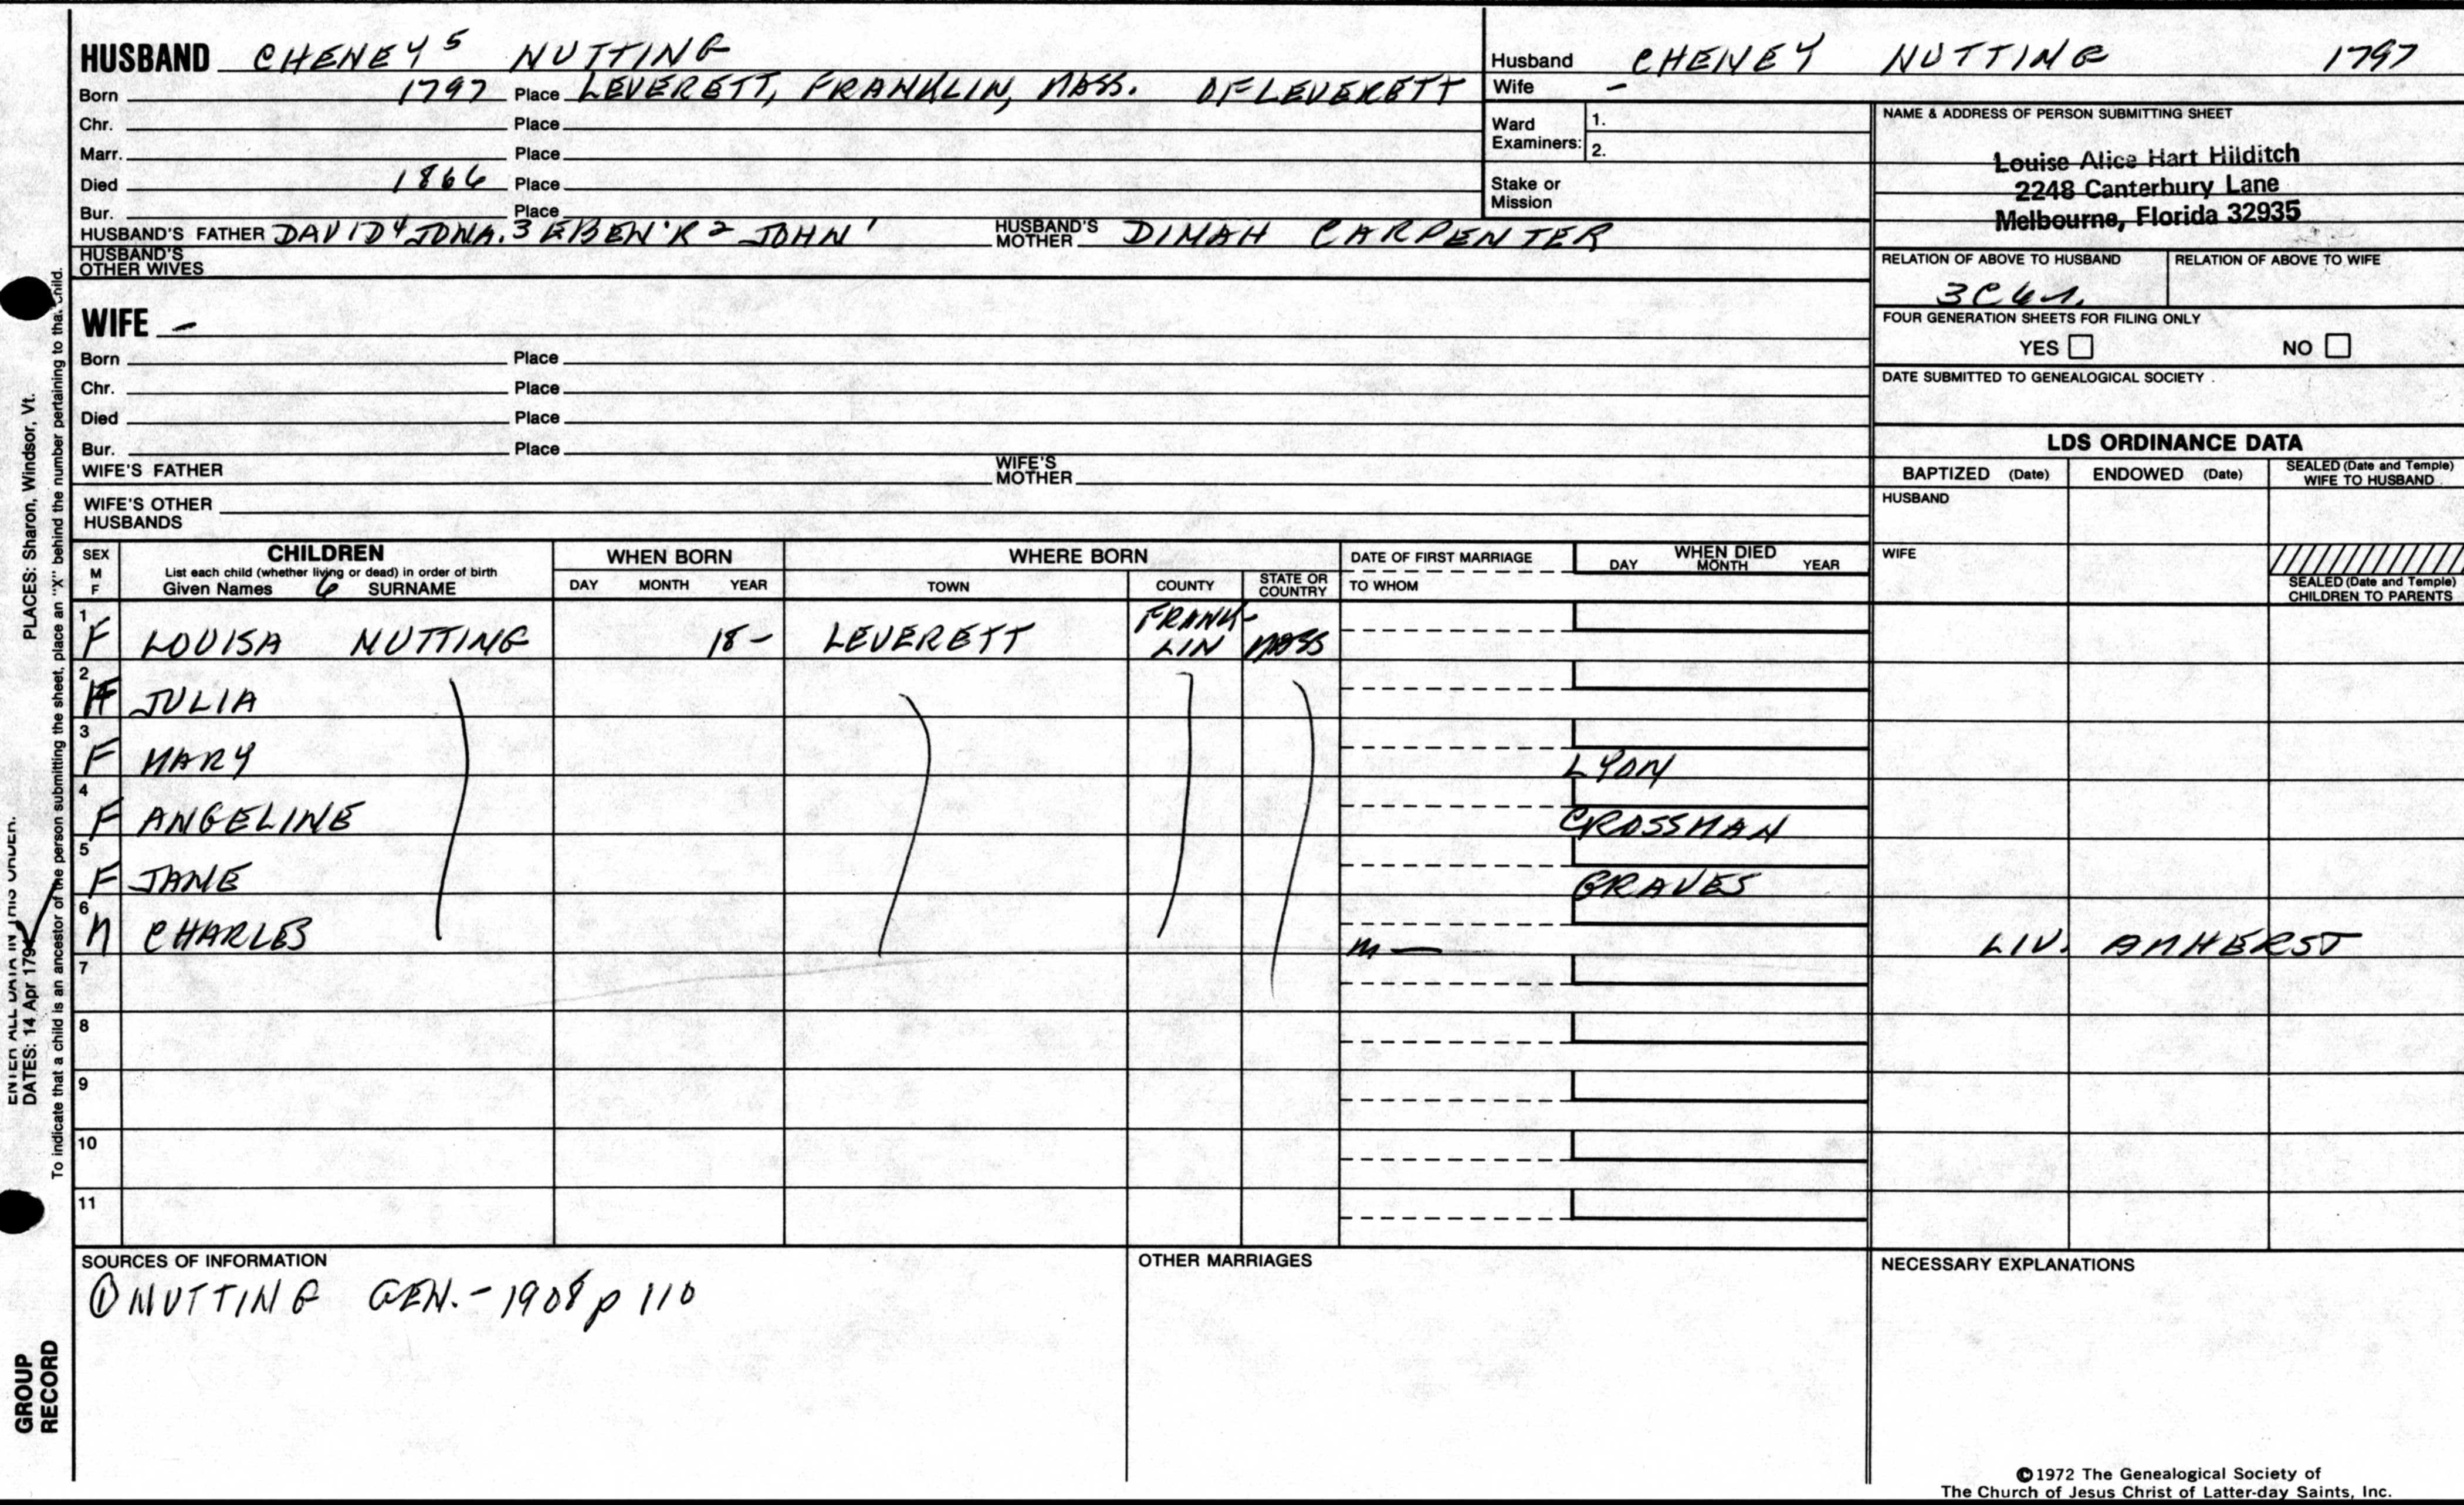 HUSBAND CHENEY 5 NUTTING
Born 1797 Place LEVERETT, FRANKLIN, MASS. OF LEVERETT
Chr. Place
Marr. Place
Died 1866 Place
Bur. Place
HUSBAND'S FATHER DAVID 4 JONA. 3 EBEN'R 2 JOHN 1 HUSBAND'S MOTHER DINAH CARPENTER
HUSBAND'S OTHER WIVES
WIFE –
Born Place
Chr. Place
Died Place
Bur. Place
WIFE'S FATHER WIFE'S MOTHER
WIFE'S OTHER HUSBANDS
Husband CHENEY NUTTING 1797
Wife –
Ward Examiners: 1.
2.
Stake or Mission
NAME & ADDRESS OF PERSON SUBMITTING SHEET
Louise Alice Hart Hilditch
2248 Canterbury Lane
Melbourne, Florida 32935
RELATION OF ABOVE TO HUSBAND RELATION OF ABOVE TO WIFE
FOUR GENERATION SHEETS FOR FILING ONLY
YES NO
DATE SUBMITTED TO GENEALOGICAL SOCIETY
LDS ORDINANCE DATA
BAPTIZED (Date) ENDOWED (Date) SEALED (Date and Temple) WIFE TO HUSBAND
HUSBAND
WIFE
SEALED (Date and Temple) CHILDREN TO PARENTS
SEX M F
CHILDREN
List each child (whether living or dead) in order of birth
Given Names 6 SURNAME
WHEN BORN
DAY MONTH YEAR
WHERE BORN
TOWN COUNTY STATE OR COUNTRY
DATE OF FIRST MARRIAGE
TO WHOM
WHEN DIED
DAY MONTH YEAR
1 F LOUISA NUTTING 18– LEVERETT FRANKLIN MASS
2 F JULIA
3 F MARY LYON
4 F ANGELINE CROSSMAN
5 F JANE GRAVES
6 M CHARLES m — LIV. AMHERST
7
8
9
10
11
SOURCES OF INFORMATION
① NUTTING GEN. – 1908 p 110
OTHER MARRIAGES
NECESSARY EXPLANATIONS
©1972 The Genealogical Society of
The Church of Jesus Christ of Latter-day Saints, Inc.
ENTER ALL DATA IN THIS ORDER.
DATES: 14 Apr 1794 PLACES: Sharon, Windsor, Vt.
To indicate that a child is an ancestor of the person submitting the sheet, place an "X" behind the number pertaining to that child.
GROUP
RECORD